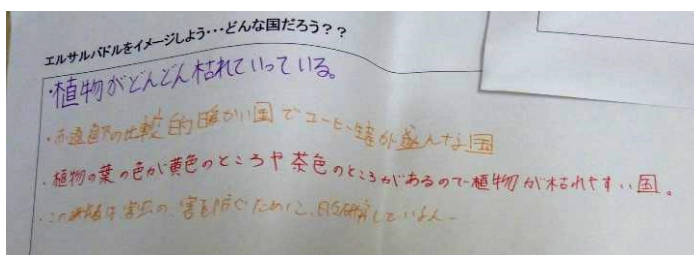 エルサルバドルをイメージしよう・・・どんな国だろう？？
・植物がどんどん枯れていっている。
・赤道直下の比較的暖かい国でコーヒー生産が盛んな国
・植物の葉の色が黄色のところや茶色のところがあるので植物が枯れやすい国。
・この 害虫の、害を防ぐために、日夜研究している